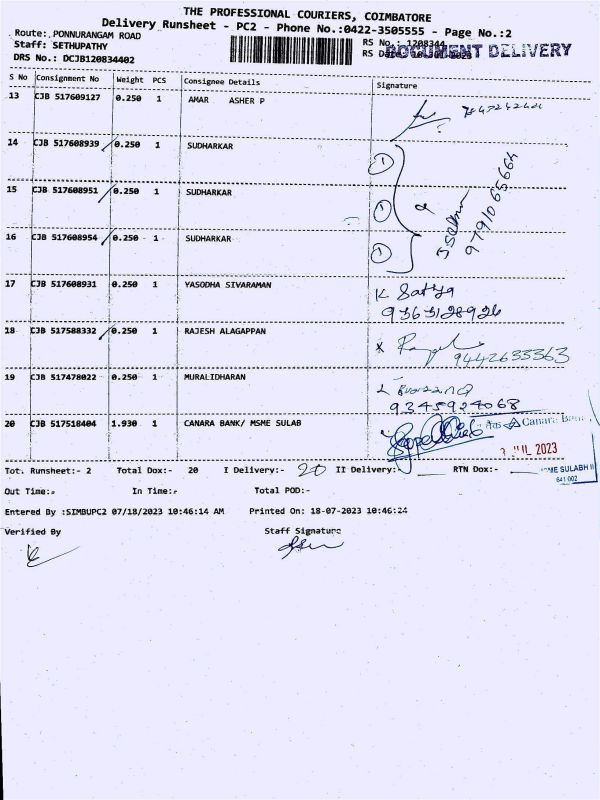 THE PROFESSIONAL COURIERS, COIMBATORE
Delivery Runsheet - PC2 - Phone No.:0422-3505555 - Page No.:2
Route: PONNURANGAM ROAD
Staff: SETHUPATHY
RS No.: 1208344
DRS No.: DCJB120834402
RS Da
DOCUMENT DELIVERY
S No Consignment No Weight PCS Consignee Details Signature
13 CJB 517609127 0.250 1 AMAR ASHER P
14 CJB 517608939 0.250 1 SUDHARKAR 1
15 CJB 517608951 0.250 1 SUDHARKAR 1
9791065664
16 CJB 517608954 0.250 1 SUDHARKAR 1
17 CJB 517608931 0.250 1 YASODHA SIVARAMAN
K Satya
9363128926
18 CJB 517588332 0.250 1 RAJESH ALAGAPPAN
x
9442633363
19 CJB 517478022 0.250 1 MURALIDHARAN
9345924068
20 CJB 517518404 1.930 1 CANARA BANK/ MSME SULAB
Canara Bank
JUL 2023
ME SULABH II
641 002
Tot. Runsheet:- 2 Total Dox:- 20 I Delivery:- 20 II Delivery:- RTN Dox:-
Out Time:- In Time:- Total POD:-
Entered By :SIMBUPC2 07/18/2023 10:46:14 AM Printed On: 18-07-2023 10:46:24
Verified By Staff Signature